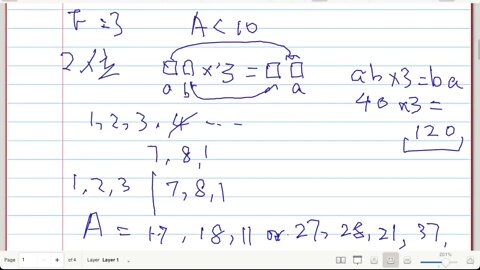 r = 3 A < 10
2位 □□ × 3 = □□
a b a
ab×3=ba
40 ×3=
120
1, 2, 3, 4 ...
7, 8, 1
1, 2, 3 | 7, 8, 1
A = 17, 18, 11 or 27, 28, 21, 37,
Page 1 of 4 Layer Layer 1
201%